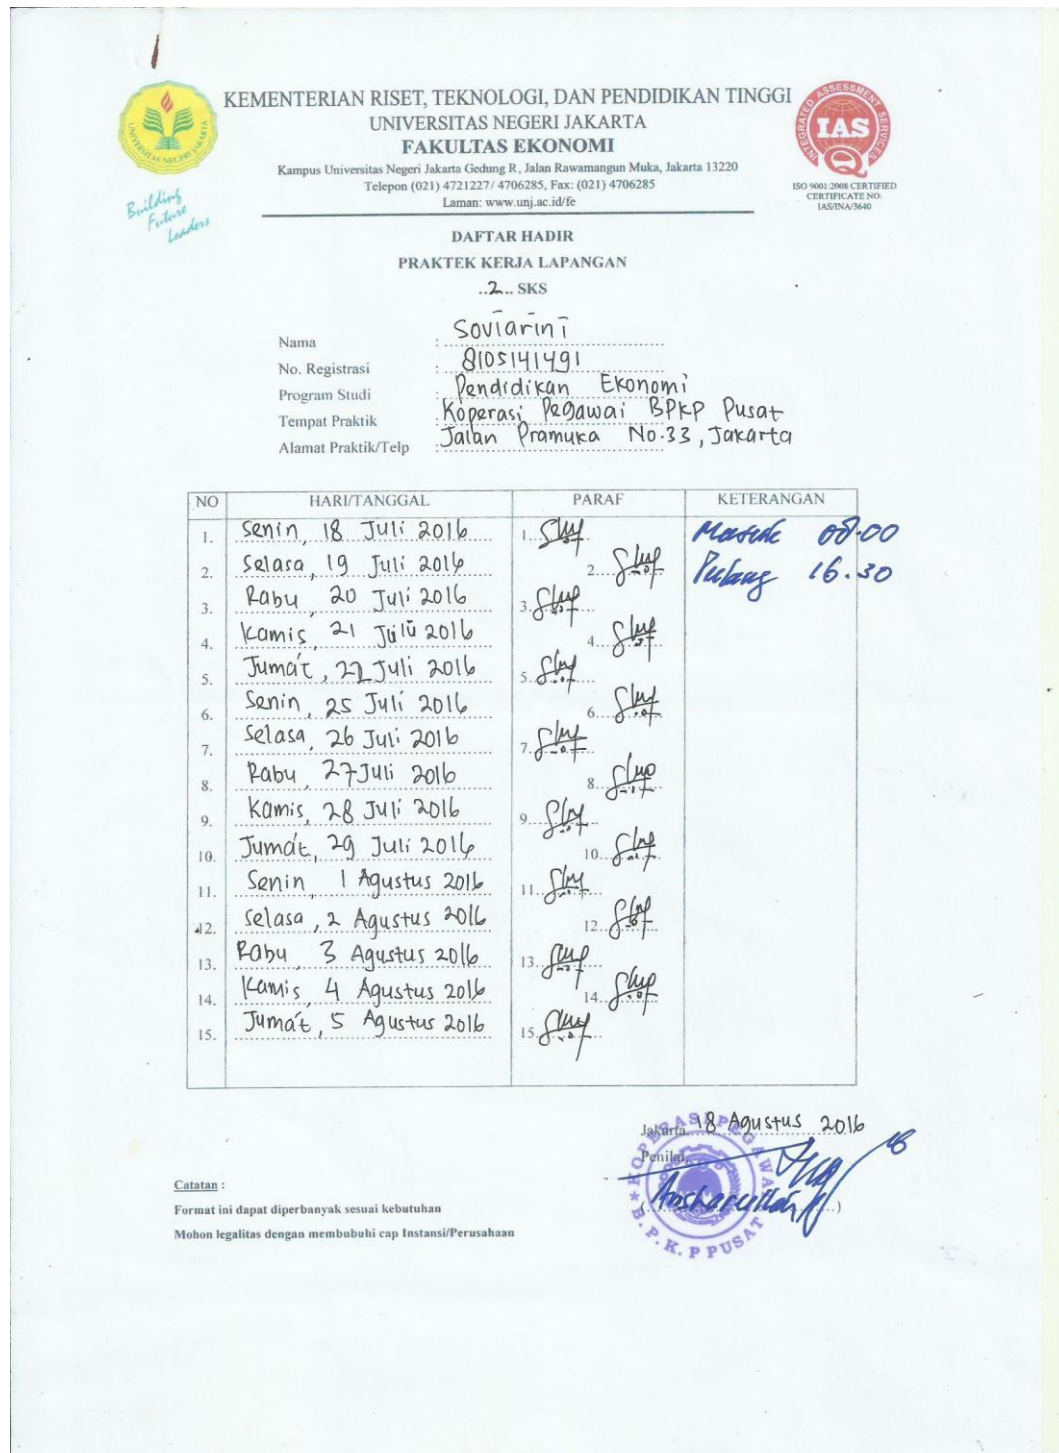 KEMENTERIAN RISET, TEKNOLOGI, DAN PENDIDIKAN TINGGI
UNIVERSITAS NEGERI JAKARTA
FAKULTAS EKONOMI
Kampus Universitas Negeri Jakarta Gedung R, Jalan Rawamangun Muka, Jakarta 13220
Telepon (021) 4721227/ 4706285, Fax: (021) 4706285
Laman: www.unj.ac.id/fe
UNIVERSITAS NEGERI JAKARTA
Building
Future
Leaders
INTEGRATED ASSESSMENT SERVICES
IAS
ISO 9001:2008 CERTIFIED
CERTIFICATE NO:
IAS/INA/3640
DAFTAR HADIR
PRAKTEK KERJA LAPANGAN
..2.. SKS
Nama : Soviarini
No. Registrasi : 8105141491
Program Studi : Pendidikan Ekonomi
Tempat Praktik : Koperasi Pegawai BPKP Pusat
Alamat Praktik/Telp : Jalan Pramuka No.33, Jakarta
NO HARI/TANGGAL PARAF KETERANGAN
1. Senin, 18 Juli 2016 1. Masuk 08.00
2. Selasa, 19 Juli 2016 2. Pulang 16.30
3. Rabu, 20 Juli 2016 3.
4. Kamis, 21 Juli 2016 4.
5. Jumat, 22 Juli 2016 5.
6. Senin, 25 Juli 2016 6.
7. Selasa, 26 Juli 2016 7.
8. Rabu, 27 Juli 2016 8.
9. Kamis, 28 Juli 2016 9.
10. Jumat, 29 Juli 2016 10.
11. Senin, 1 Agustus 2016 11.
12. Selasa, 2 Agustus 2016 12.
13. Rabu, 3 Agustus 2016 13.
14. Kamis, 4 Agustus 2016 14.
15. Jumat, 5 Agustus 2016 15.
Jakarta, 18 Agustus 2016
Penilai,
KOPERASI PEGAWAI
B.P.K.P PUSAT
Catatan :
Format ini dapat diperbanyak sesuai kebutuhan
Mohon legalitas dengan membubuhi cap Instansi/Perusahaan